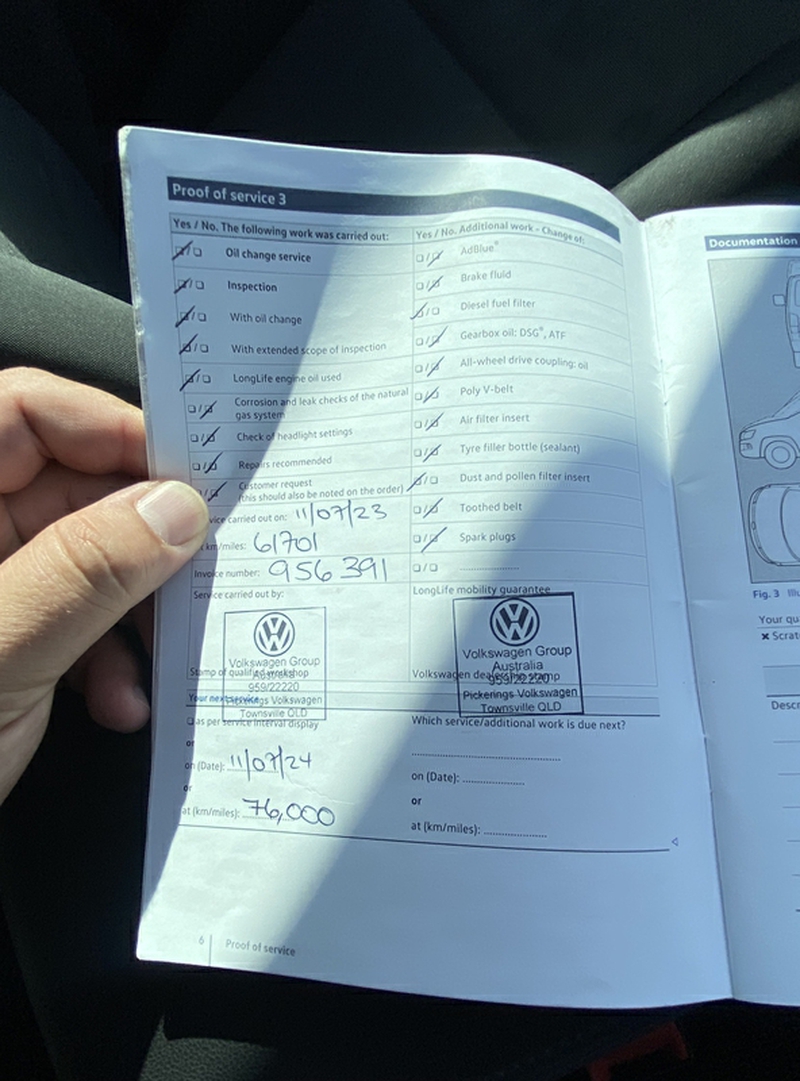 Proof of service 3
Yes / No. The following work was carried out:
Oil change service
Inspection
With oil change
With extended scope of inspection
LongLife engine oil used
Corrosion and leak checks of the natural
gas system
Check of headlight settings
Repairs recommended
Customer request
(this should also be noted on the order)
vice carried out on: 11/07/23
km/miles: 61701
Invoice number: 956391
Service carried out by:
Volkswagen Group
Australia
959/22220
Pickerings Volkswagen
Townsville QLD
Stamp of qualified workshop
Your next service
as per service interval display
or
on (Date): 11/07/24
or
at (km/miles): 76,000
Yes / No. Additional work - Change of:
AdBlue®
Brake fluid
Diesel fuel filter
Gearbox oil: DSG®, ATF
All-wheel drive coupling: oil
Poly V-belt
Air filter insert
Tyre filler bottle (sealant)
Dust and pollen filter insert
Toothed belt
Spark plugs
LongLife mobility guarantee
Volkswagen Group
Australia
959/22220
Pickerings Volkswagen
Townsville QLD
Volkswagen dealership stamp
Which service/additional work is due next?
on (Date):
or
at (km/miles):
6 Proof of service
Documentation
Fig. 3
Your qu
× Scrat
Descr